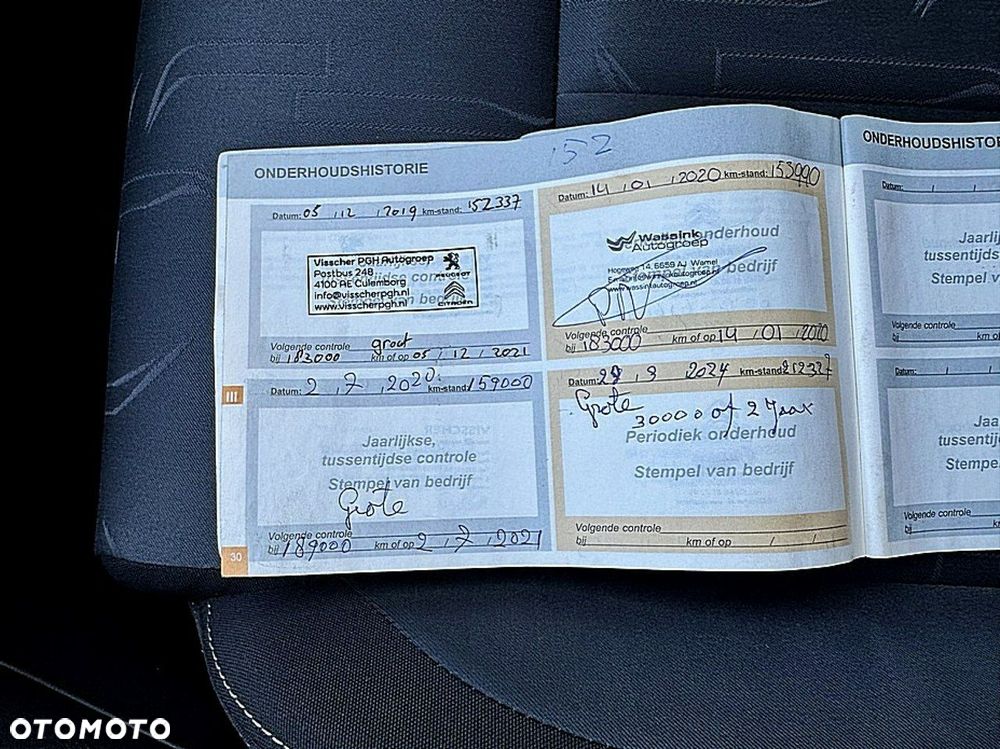 152
ONDERHOUDSHISTORIE
Datum: 05 , 12 , 2019 km-stand: 152337
Visscher PGH Autogroep
Postbus 248
4100 AE Culemborg
info@visscherpgh.nl
www.visscherpgh.nl
PEUGEOT
CITROËN
Stempel van bedrijf
Volgende controle groot
bij 182000 km of op 05 , 12 , 2021
Datum: 14 , 01 , 2020 km-stand: 153990
onderhoud
Wassink
Autogroep
Hogeweg 14, 6659 AJ Wamel
www.wassinkautogroep.nl
van bedrijf
Volgende controle
bij 183000 km of op 14 , 01 , 2020
Datum: 2 , 7 , 2020 km-stand: 159000
Jaarlijkse,
tussentijdse controle
Stempel van bedrijf
Grote
Volgende controle
bij 189000 km of op 2 , 7 , 2021
Datum: 29 , 3 2024 km-stand: 212327
Grote
30000 of 2 Jaar
Periodiek onderhoud
Stempel van bedrijf
Volgende controle
bij km of op / /
III
30
ONDERHOUDSHISTO
Datum: / /
Jaarli
tussentijds
Stempel v
Volgende controle
bij
Datum: / /
Jaa
tussentij
Stempe
Volgende controle
bij
OTOMOTO